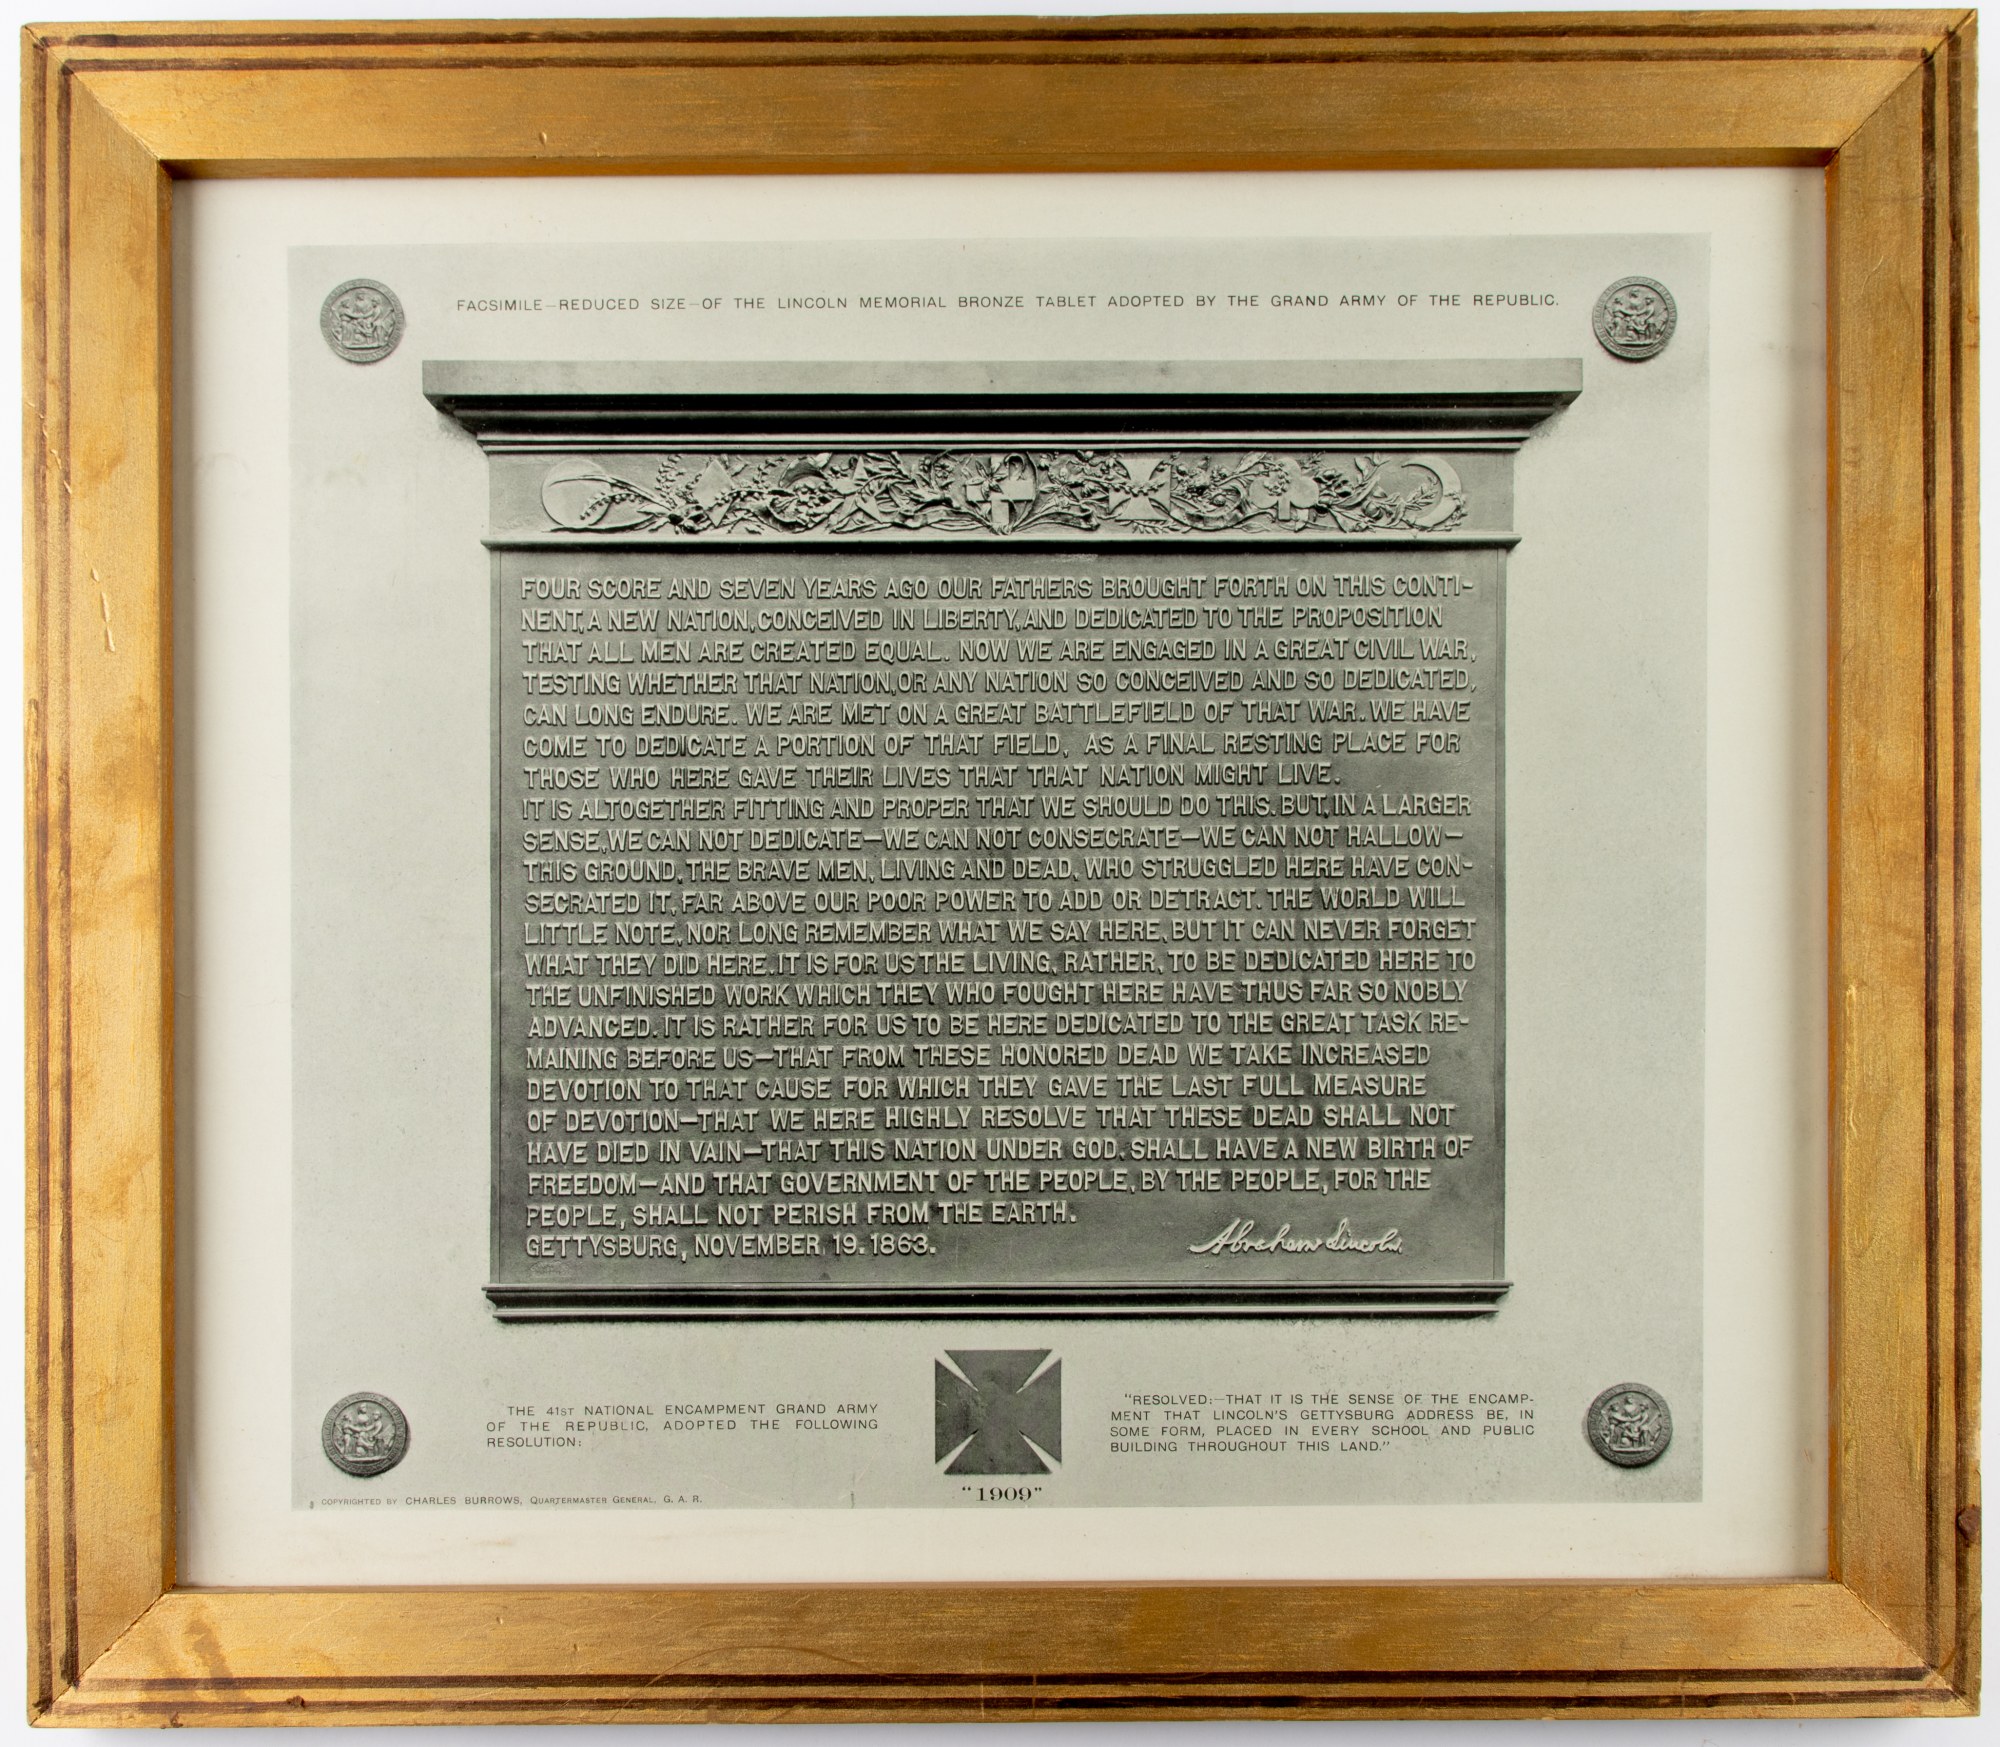 FACSIMILE—REDUCED SIZE—OF THE LINCOLN MEMORIAL BRONZE TABLET ADOPTED BY THE GRAND ARMY OF THE REPUBLIC.
FOUR SCORE AND SEVEN YEARS AGO OUR FATHERS BROUGHT FORTH ON THIS CONTI-
NENT, A NEW NATION, CONCEIVED IN LIBERTY, AND DEDICATED TO THE PROPOSITION
THAT ALL MEN ARE CREATED EQUAL. NOW WE ARE ENGAGED IN A GREAT CIVIL WAR,
TESTING WHETHER THAT NATION, OR ANY NATION SO CONCEIVED AND SO DEDICATED,
CAN LONG ENDURE. WE ARE MET ON A GREAT BATTLEFIELD OF THAT WAR. WE HAVE
COME TO DEDICATE A PORTION OF THAT FIELD, AS A FINAL RESTING PLACE FOR
THOSE WHO HERE GAVE THEIR LIVES THAT THAT NATION MIGHT LIVE.
IT IS ALTOGETHER FITTING AND PROPER THAT WE SHOULD DO THIS. BUT, IN A LARGER
SENSE, WE CAN NOT DEDICATE—WE CAN NOT CONSECRATE—WE CAN NOT HALLOW—
THIS GROUND, THE BRAVE MEN, LIVING AND DEAD, WHO STRUGGLED HERE HAVE CON-
SECRATED IT, FAR ABOVE OUR POOR POWER TO ADD OR DETRACT. THE WORLD WILL
LITTLE NOTE, NOR LONG REMEMBER WHAT WE SAY HERE, BUT IT CAN NEVER FORGET
WHAT THEY DID HERE. IT IS FOR US THE LIVING, RATHER, TO BE DEDICATED HERE TO
THE UNFINISHED WORK WHICH THEY WHO FOUGHT HERE HAVE THUS FAR SO NOBLY
ADVANCED. IT IS RATHER FOR US TO BE HERE DEDICATED TO THE GREAT TASK RE-
MAINING BEFORE US—THAT FROM THESE HONORED DEAD WE TAKE INCREASED
DEVOTION TO THAT CAUSE FOR WHICH THEY GAVE THE LAST FULL MEASURE
OF DEVOTION—THAT WE HERE HIGHLY RESOLVE THAT THESE DEAD SHALL NOT
HAVE DIED IN VAIN—THAT THIS NATION UNDER GOD, SHALL HAVE A NEW BIRTH OF
FREEDOM—AND THAT GOVERNMENT OF THE PEOPLE, BY THE PEOPLE, FOR THE
PEOPLE, SHALL NOT PERISH FROM THE EARTH.
GETTYSBURG, NOVEMBER 19. 1863.
Abraham Lincoln.
THE 41ST NATIONAL ENCAMPMENT GRAND ARMY
OF THE REPUBLIC, ADOPTED THE FOLLOWING
RESOLUTION:
"RESOLVED:—THAT IT IS THE SENSE OF THE ENCAMP-
MENT THAT LINCOLN'S GETTYSBURG ADDRESS BE, IN
SOME FORM, PLACED IN EVERY SCHOOL AND PUBLIC
BUILDING THROUGHOUT THIS LAND."
"1909"
COPYRIGHTED BY CHARLES BURROWS, QUARTERMASTER GENERAL, G. A. R.